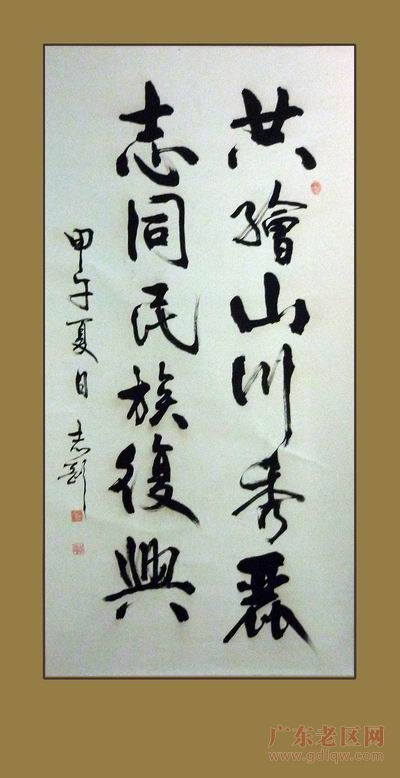 共繪山川秀麗
志同民族復興
甲午夏日志
广东老区网
www.gdlqw.com